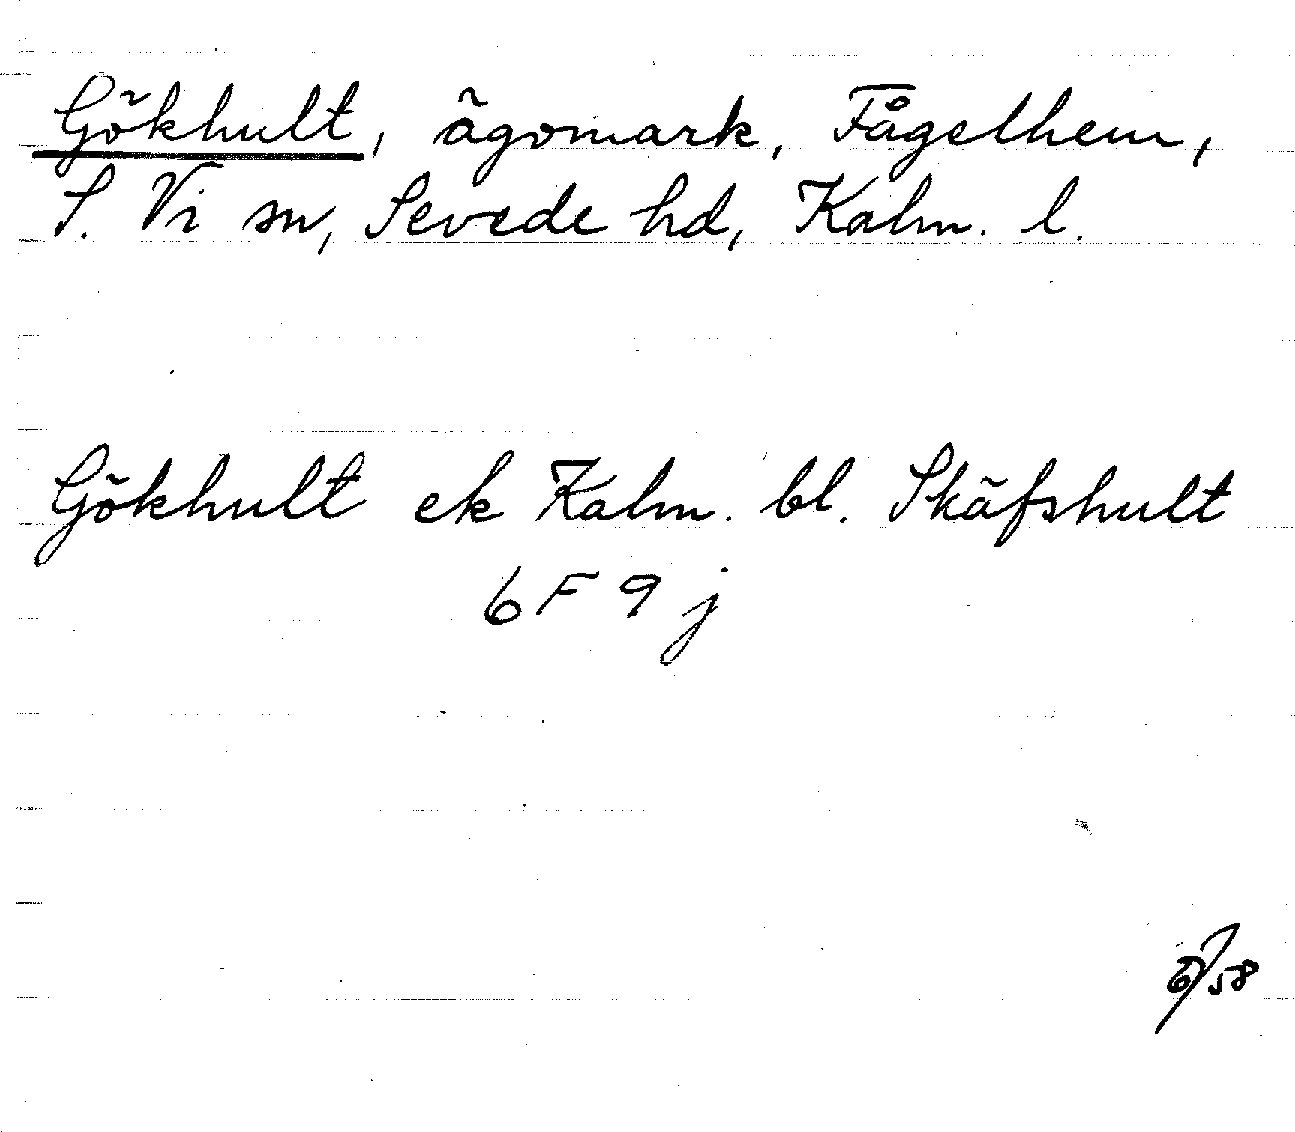 Gökhult, ägomark, Fågelhem,
S. Vi sn, Sevede hd, Kalm. l.
Gökhult ek Kalm. bl. Skäfshult
6 F 9 j
/58